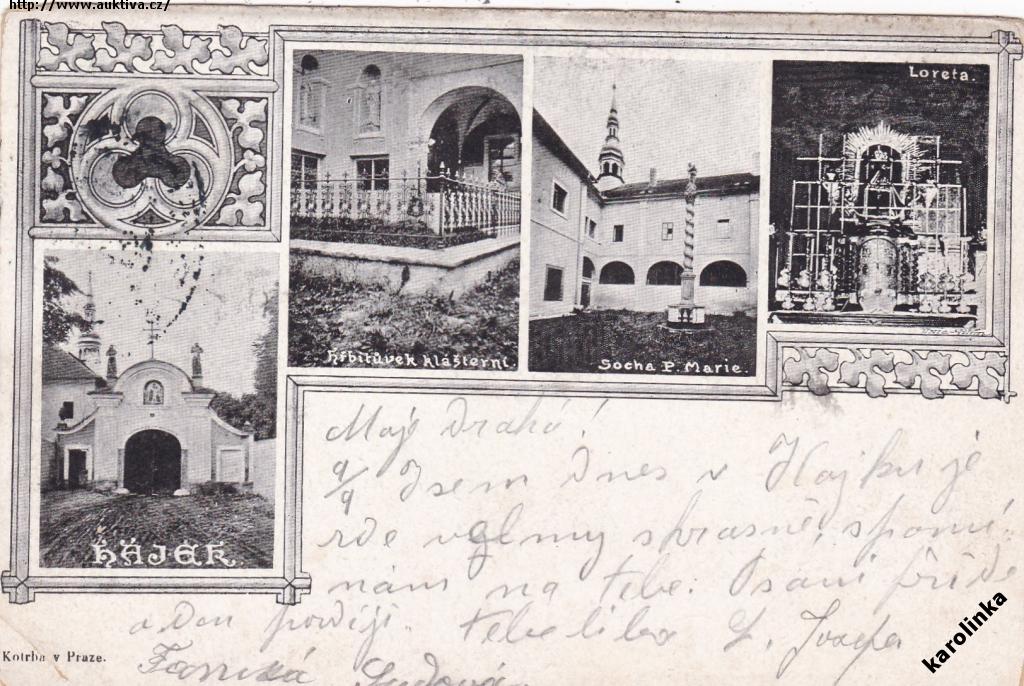 http://www.auktiva.cz/
Loreta.
Hřbitůvek klášterní.
Socha P. Marie.
HÁJEK.
Moje Drahá!
9/9 Jsem dnes v Hájku je
zde velmy skrasně, spomí-
nám na tebe. Psaní příde
o den podíji. tebe líbá
Kotrba v Praze.
karolinka